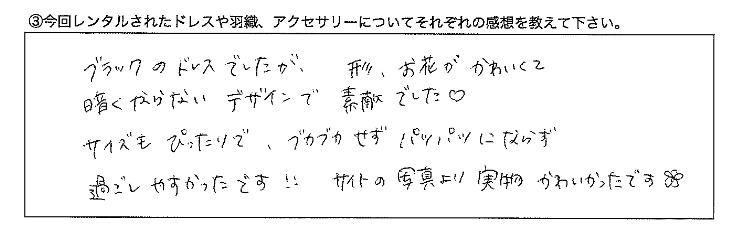 ③今回レンタルされたドレスや羽織、アクセサリーについてそれぞれの感想を教えて下さい。
ブラックのドレスでしたが、形、お花がかわいくて
暗くならないデザインで素敵でした♡
サイズもぴったりで、ブカブカせずパツパツにならず
過ごしやすかったです!! サイトの写真より実物かわいかったです